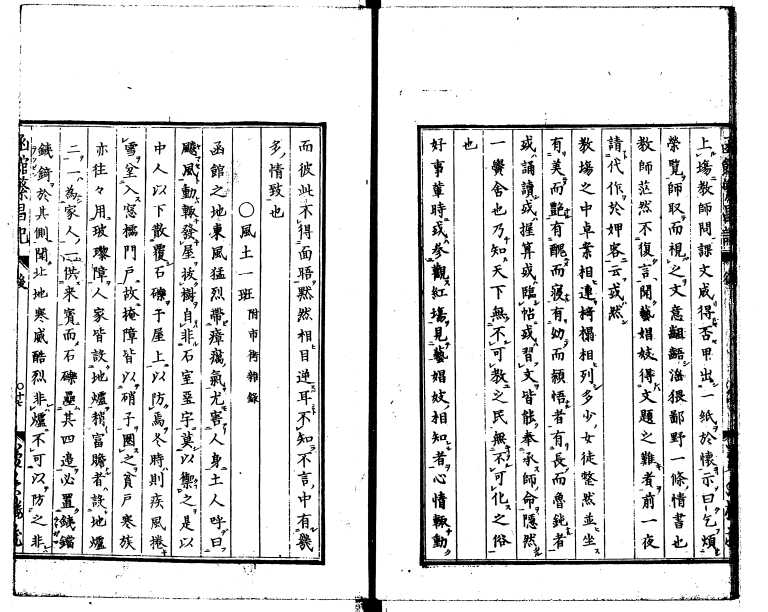 上場教師問課文成得否甲出一紙於懐示曰乞煩
榮覧師取而視之文意齟齬滛猥鄙野一條情書也
教師茫然不復言聞藝娼妓得文題之難者前一夜
請代作於狎客云或然
教場之中卓案相連椅榻相列多少女徒整然並坐
有美而艶有醜而寝有幼而穎悟者有長而魯鈍者
或誦讀或握算或臨帖或習文皆能奉承師命隠然
一黌舍也乃知天下無不可教之民無不可化之俗
也
好事輩時或参觀紅場見藝娼妓相知者心情輙動
而彼此不得面晤黙然相目逆耳不知不言中有幾
多情致也
○風土一班附市街雑録
函館之地東風猛烈帶瘴癘氣尤害人身土人呼曰
颶風動輙發屋抜樹自非石室堊宇莫以禦之是以
中人以下散覆石礫于屋上以防焉冬時則疾風捲
雪坌入窓櫺門戸故掩障皆以硝子圏之貧戸寒族
亦往々用玻瓈障人家皆設地爐稍富贍者設地爐
二一為家人一供来賓而石礫壘其四邉必置銕鐺
銕錡於其側聞北地寒威酷烈非爐不可以防之非
函館繁昌記
後
〇十七